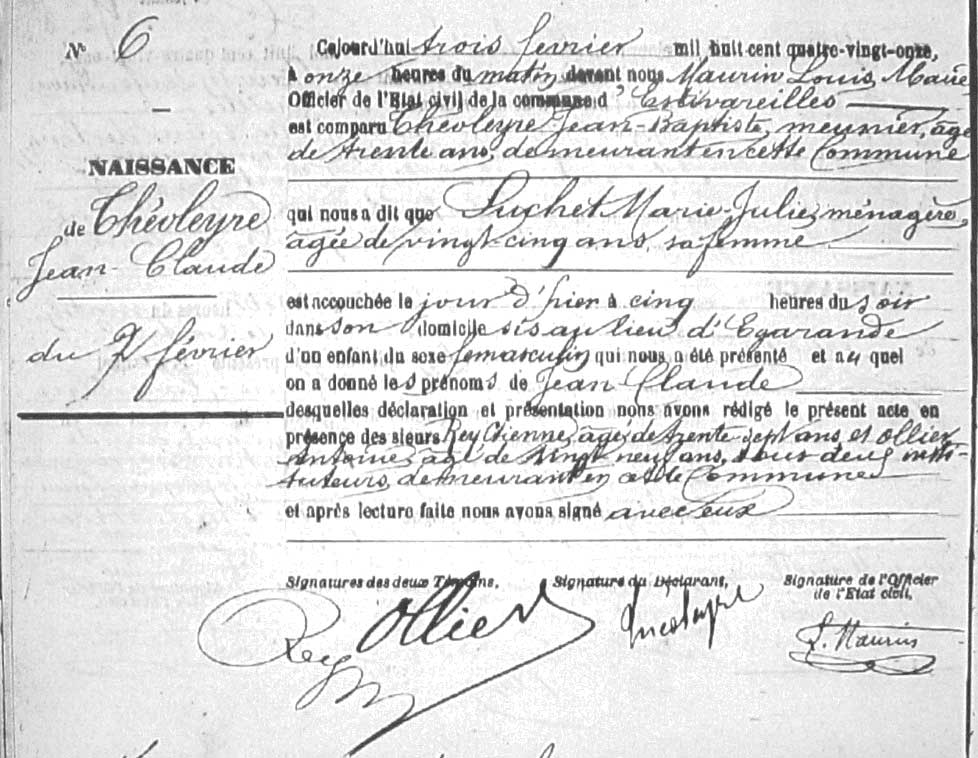 N° 6
NAISSANCE
de Théoleyre
Jean-Claude
du 2 février
Cejourd'hui trois février mil huit cent quatre-vingt-onze,
à onze heures du matin devant nous Maurin Louis, Maire
Officier de l'Etat civil de la commune d'Estivareilles
est comparu Théoleyre Jean-Baptiste, meunier, âgé
de trente ans, demeurant en cette Commune
qui nous a dit que Luchet Marie-Julie, ménagère,
âgée de vingt-cinq ans, sa femme
est accouchée le jour d'hier à cinq heures du soir
dans son domicile sis au lieu d'Egarande
d'un enfant du sexe masculin qui nous a été présenté et au quel
on a donné les prénoms de Jean Claude
desquelles déclaration et présentation nous avons rédigé le présent acte en
présence des sieurs Rey Etienne, âgé de trente sept ans, et Ollier
Antoine, âgé de vingt neuf ans, tous deux insti-
tuteurs, demeurant en cette Commune
et après lecture faite nous avons signé avec eux
Signatures des deux Témoins, Signature du Déclarant, Signature de l'Officier
de l'Etat civil,
Rey Ollier Théoleyre L. Maurin